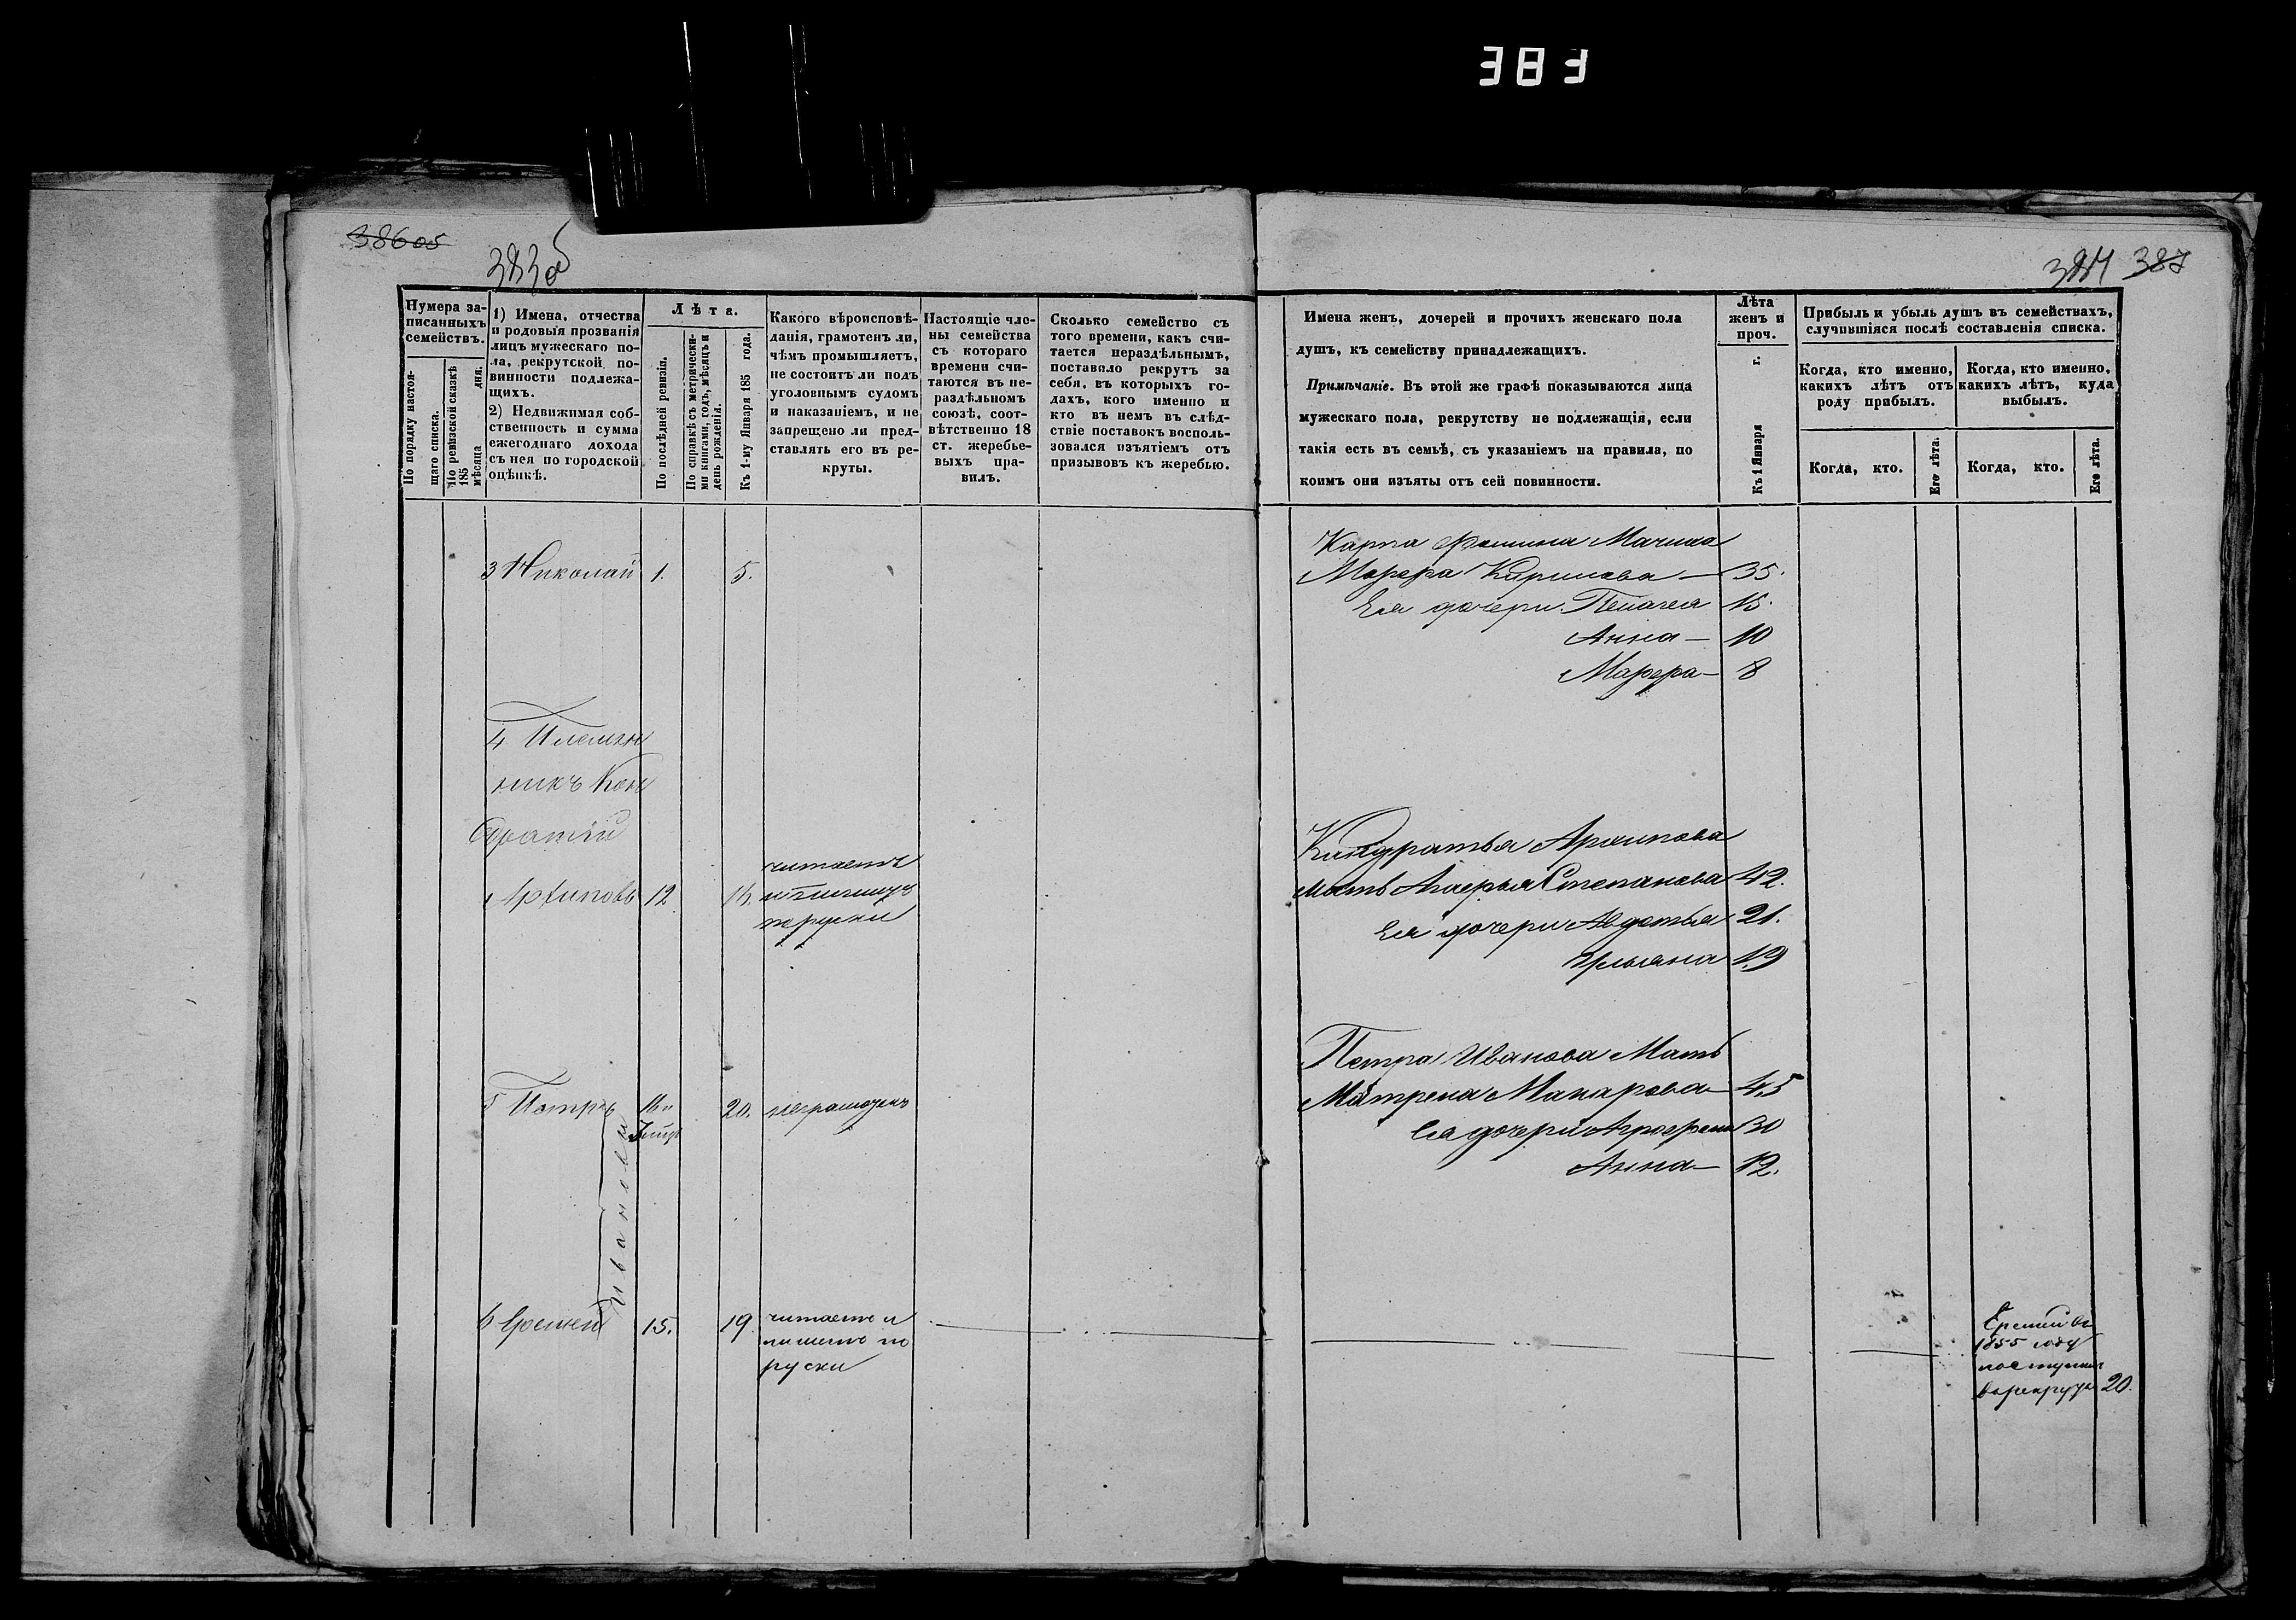 383
386об
383об
384 387
Нумера за-
писанныхъ
семействъ.
По порядку настоя-
щаго списка.
По ревизской сказкѣ
185 мѣсяца дня.
1) Имена, отчества
и родовыя прозванія
лицъ мужескаго по-
ла, рекрутской по-
винности подлежа-
щихъ.
2) Недвижимая соб-
ственность и сумма
ежегоднаго дохода
съ нея по городской
оцѣнкѣ.
Лѣта.
По послѣдней ревизіи.
По справкѣ съ метрически-
ми книгами, годъ, мѣсяцъ и
день рожденія.
Къ 1-му Января 185 года.
Какого вѣроисповѣ-
данія, грамотенъ ли,
чѣмъ промышляетъ,
не состоитъ ли подъ
уголовнымъ судомъ
и наказаніемъ, и не
запрещено ли пред-
ставлять его въ ре-
круты.
Настоящіе чле-
ны семейства
съ котораго
времени счи-
таются въ не-
раздѣльномъ
союзѣ, соот-
вѣтственно 18
ст. жеребье-
выхъ пра-
вилъ.
Сколько семейство съ
того времени, какъ счи-
тается нераздѣльнымъ,
поставило рекрутъ за
себя, въ которыхъ го-
дахъ, кого именно и
кто въ немъ въ слѣд-
ствіе поставокъ восполь-
зовался изъятіемъ отъ
призывовъ къ жеребью.
Имена женъ, дочерей и прочихъ женскаго пола
душъ, къ семейству принадлежащихъ.
Примѣчаніе. Въ этой же графѣ показываются лица
мужескаго пола, рекрутству не подлежащія, если
такія есть въ семьѣ, съ указаніемъ на правила, по
коимъ они изъяты отъ сей повинности.
Лѣта
женъ и
проч.
Къ 1 Января г.
Прибыль и убыль душъ въ семействахъ,
случившіяся послѣ составленія списка.
Когда, кто именно,
какихъ лѣтъ отъ
роду прибылъ.
Когда, кто именно,
какихъ лѣтъ, куда
выбылъ.
Когда, кто.
Его лѣта.
Когда, кто.
Его лѣта.
3 Николай 1. 5.
4 Племян
никъ Кон
дратій
Архиповъ 12 16. читаетъ
и пишетъ
по руски
5 Петръ 16 и 20. неграмотенъ
Ивановы
6 Еремей 15. 19 читаетъ и
пишетъ по
руски
Карпа Фомина Мачиха
Марфа Кирилова — 35.
Ея дочери Пелагея 15.
Анна — 10
Марфа — 8
Кондратья Архипова
мать Агафья Степанова 42.
Ея дочери Авдотья 21.
Ульяна 19
Петра Иванова Мать
Матрена Макарова — 45
Ея дочери Аграфена 30
Анна — 12.
Еремей въ
1855 году
поступилъ
въ рекруты 20.